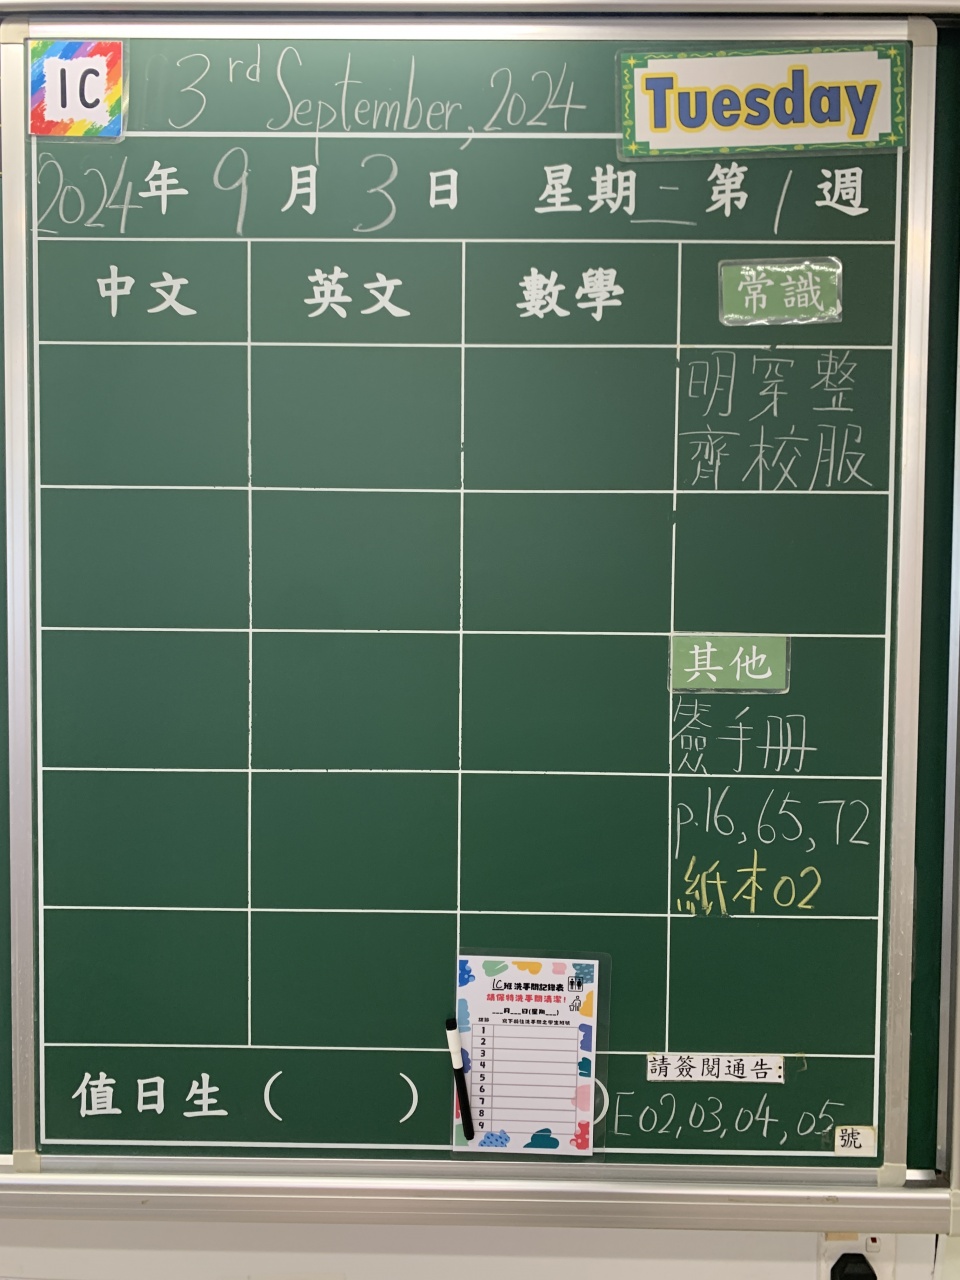 1C
3rd September, 2024
Tuesday
2024年9月3日 星期二 第1週
中文 英文 數學 常識
明穿整
齊校服
其他
簽手冊
p.16, 65, 72
紙本02
1C班洗手間記錄表
請保持洗手間清潔!
___月___日(星期___)
1
2
3
4
5
6
7
8
9
請簽閱通告:
值日生( ) )E02,03,04,05號